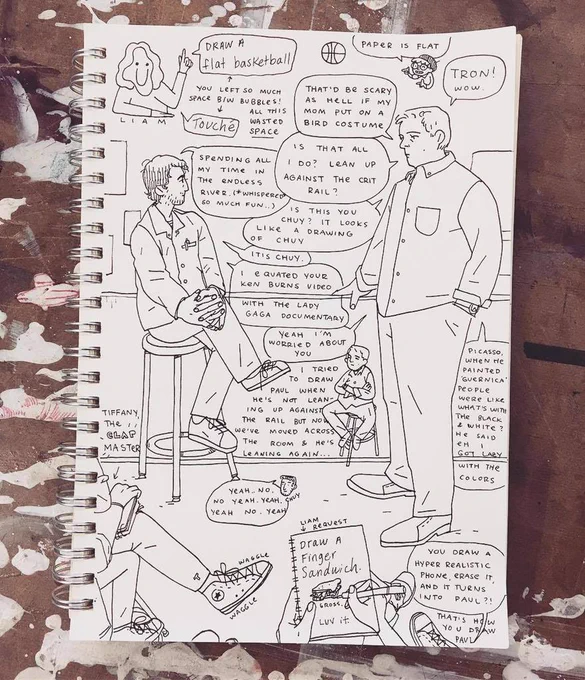 DRAW A
flat basketball
PAPER IS FLAT
TRON!
WOW.
LIAM
YOU LEFT SO MUCH
SPACE B/W BUBBLES!
ALL THIS
WASTED
SPACE
Touché
THAT'D BE SCARY
AS HELL IF MY
MOM PUT ON A
BIRD COSTUME
SPENDING ALL
MY TIME IN
THE ENDLESS
RIVER. (*WHISPERED*
SO MUCH FUN..)
IS THAT ALL
I DO? LEAN UP
AGAINST THE CRIT
RAIL?
IS THIS YOU
CHUY? IT LOOKS
LIKE A DRAWING
OF CHUY
IT IS CHUY.
I EQUATED YOUR
KEN BURNS VIDEO
WITH THE LADY
GAGA DOCUMENTARY
YEAH I'M
WORRIED ABOUT
YOU
I TRIED
TO DRAW
PAUL WHEN
HE'S NOT LEAN-
ING UP AGAINST
THE RAIL BUT NOW
WE'VE MOVED ACROSS
THE ROOM & HE'S
LEANING AGAIN...
PICASSO,
WHEN HE
PAINTED
'GUERNICA'
PEOPLE
WERE LIKE
WHAT'S WITH
THE BLACK
& WHITE?
HE SAID
EH I
GOT LAZY
WITH THE
COLORS
TIFFANY,
THE
CLAP
MASTER
YEAH.. NO.
NO YEAH. YEAH.
YEAH NO. YEAH
CHUY
WAGGLE
WAGGLE
LIAM
REQUEST
DRAW A
Finger
Sandwich.
GROSS.
LUV it.
YOU DRAW A
HYPER REALISTIC
PHONE, ERASE IT,
AND IT TURNS
INTO PAUL?!
THAT'S HOW
YOU DRAW
PAUL